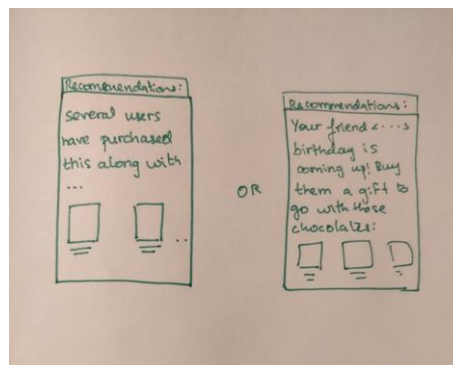 Recommendations:
several users
have purchased
this along with
...
OR
Recommendations:
Your friend <...>s
birthday is
coming up! Buy
them a gift to
go with those
chocolates: